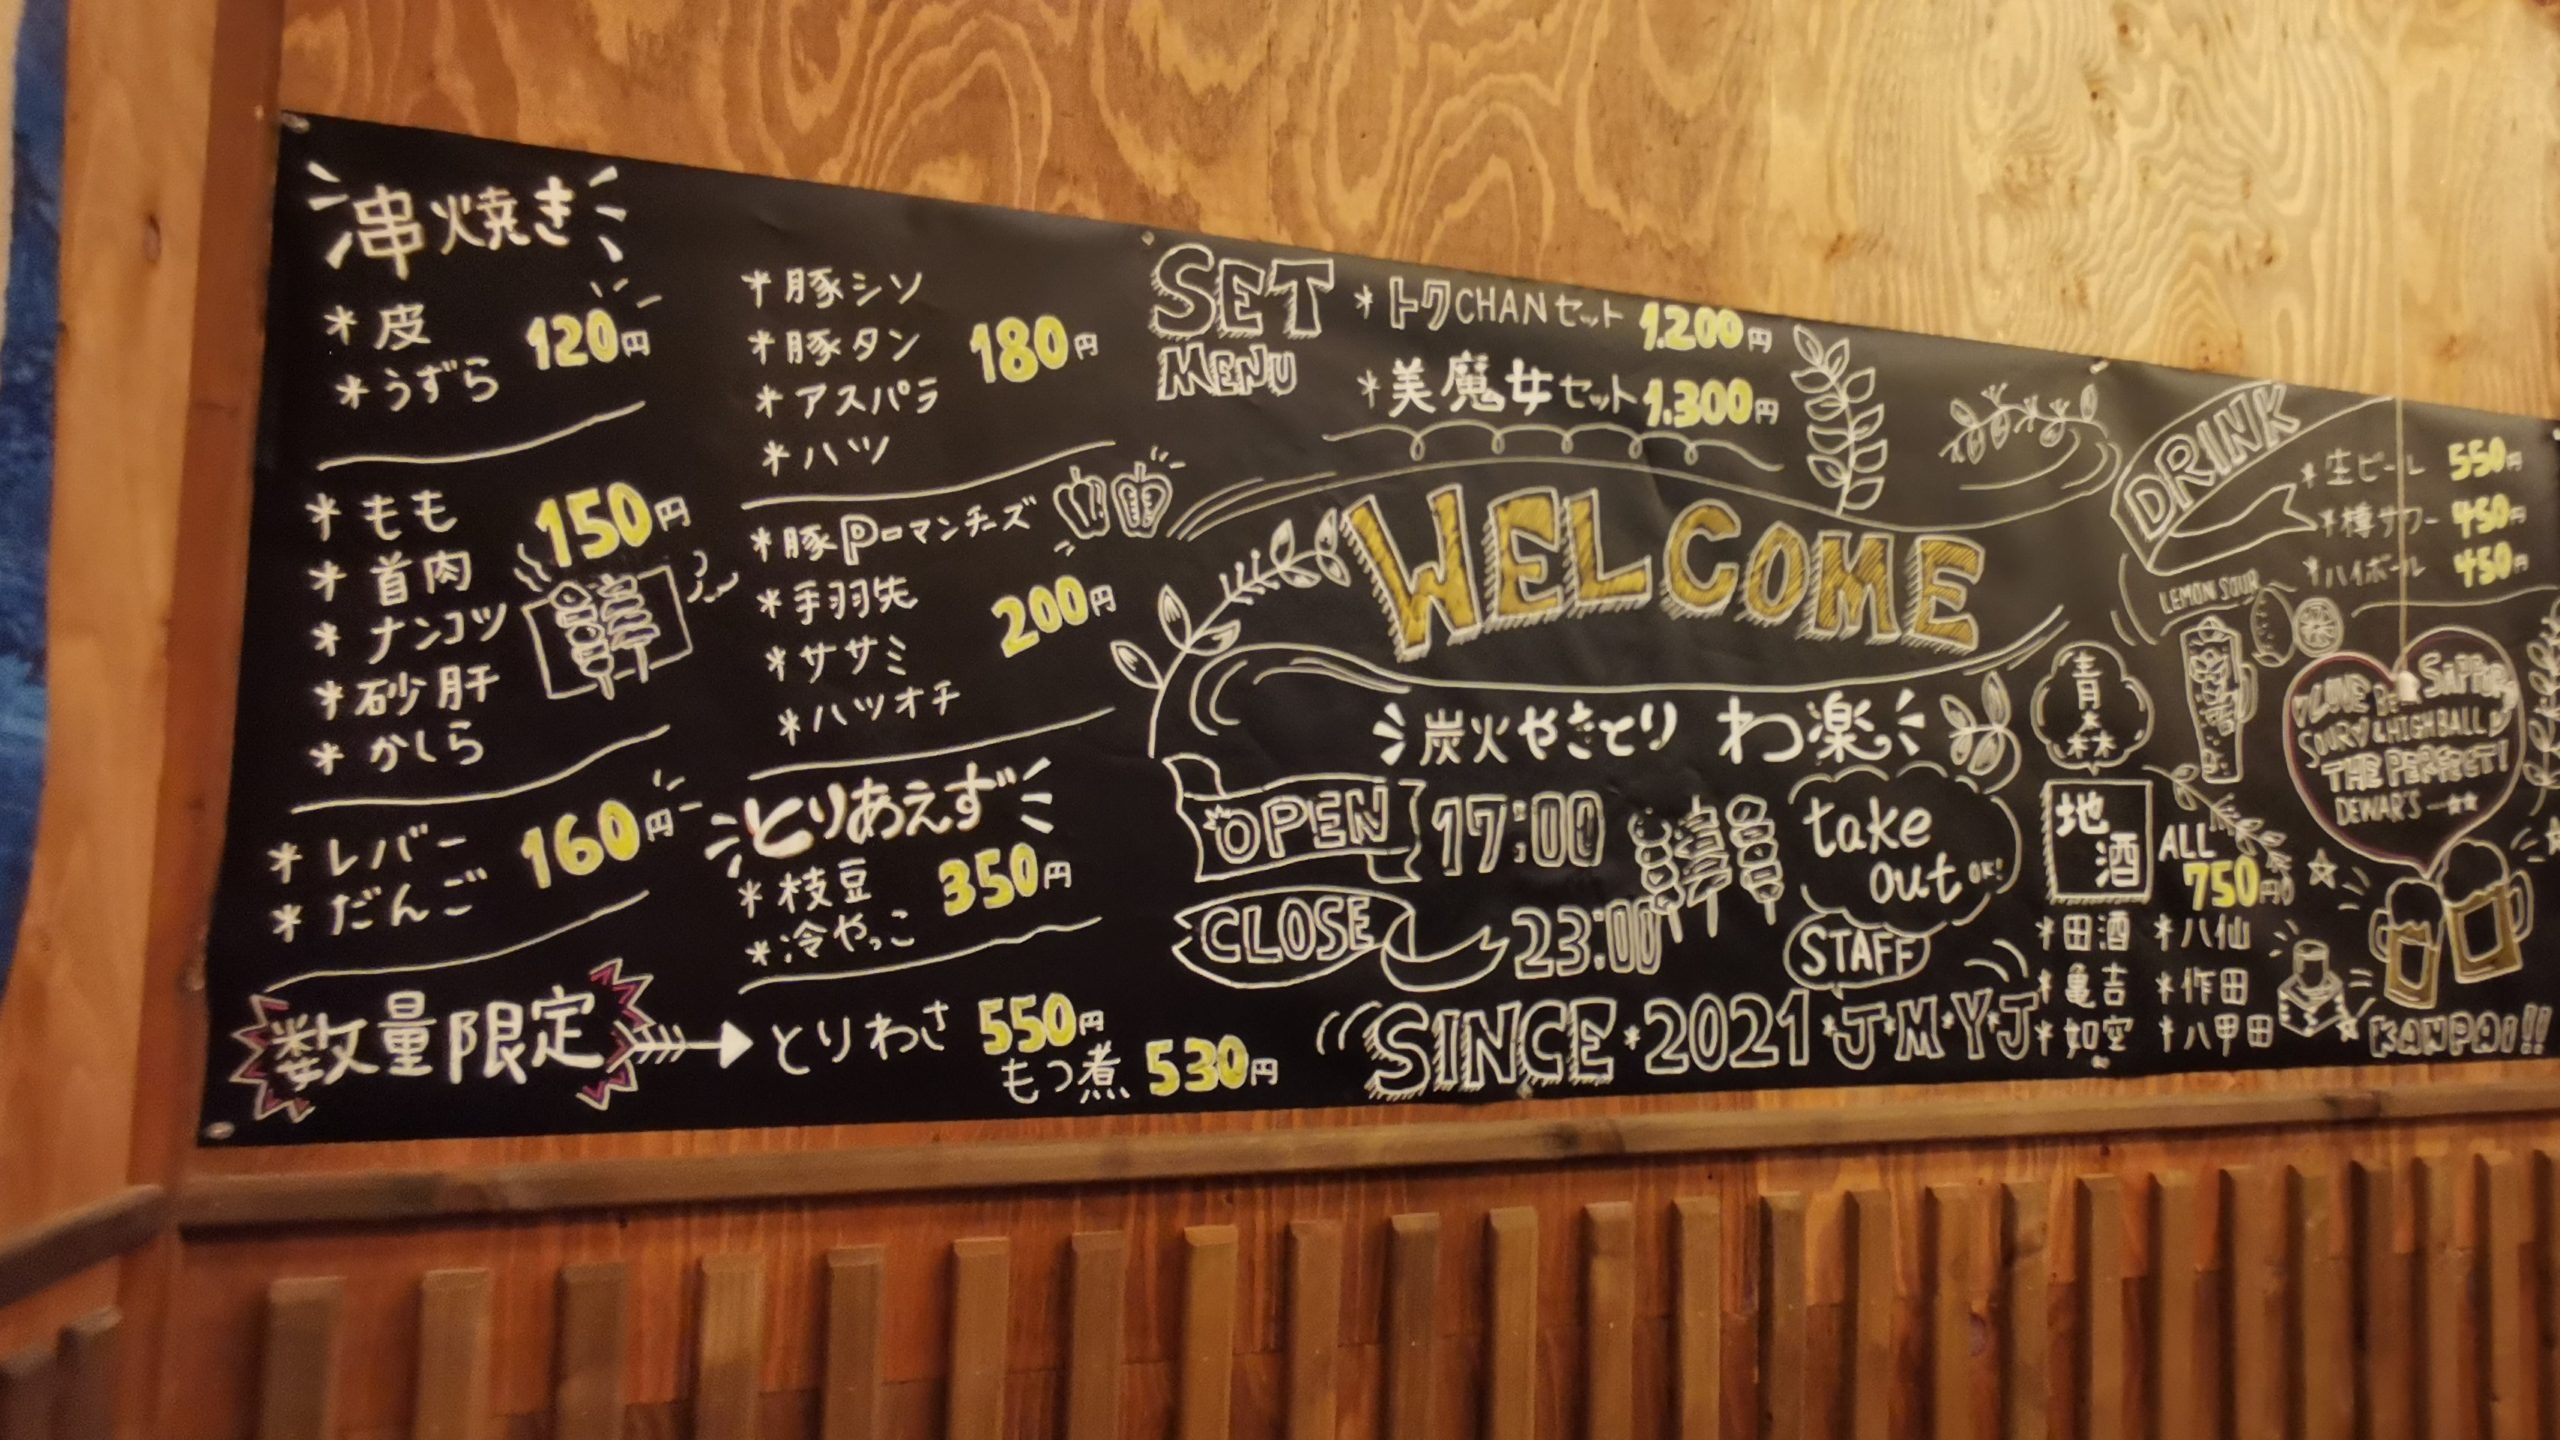 串焼き
*皮
*うずら
120円
*もも
*首肉
*ナンコツ
*砂肝
*かしら
150円
*レバー
*だんご
160円
数量限定
とりわさ 550円
もつ煮 530円
*豚シソ
*豚タン
*アスパラ
*ハツ
180円
*豚Pーマンチーズ
*手羽先
*ササミ
*ハツオチ
200円
とりあえず
*枝豆
*冷やっこ
350円
SET
MENU
*トクCHANセット 1.200円
*美魔女セット 1.300円
WELCOME
炭火やきとり わ楽
OPEN 17:00
CLOSE 23:00
take
out OK!
STAFF
SINCE*2021*J*M*Y*J
DRINK
*生ビール 550円
*樽サワー 450円
*ハイボール 450円
LEMON SOUR
青森
地酒
ALL
750円
*田酒 *八仙
*亀吉 *作田
*如空 *八甲田
SOUR & HIGHBALL
THE PERFECT!
DEWAR'S
KANPAI!!